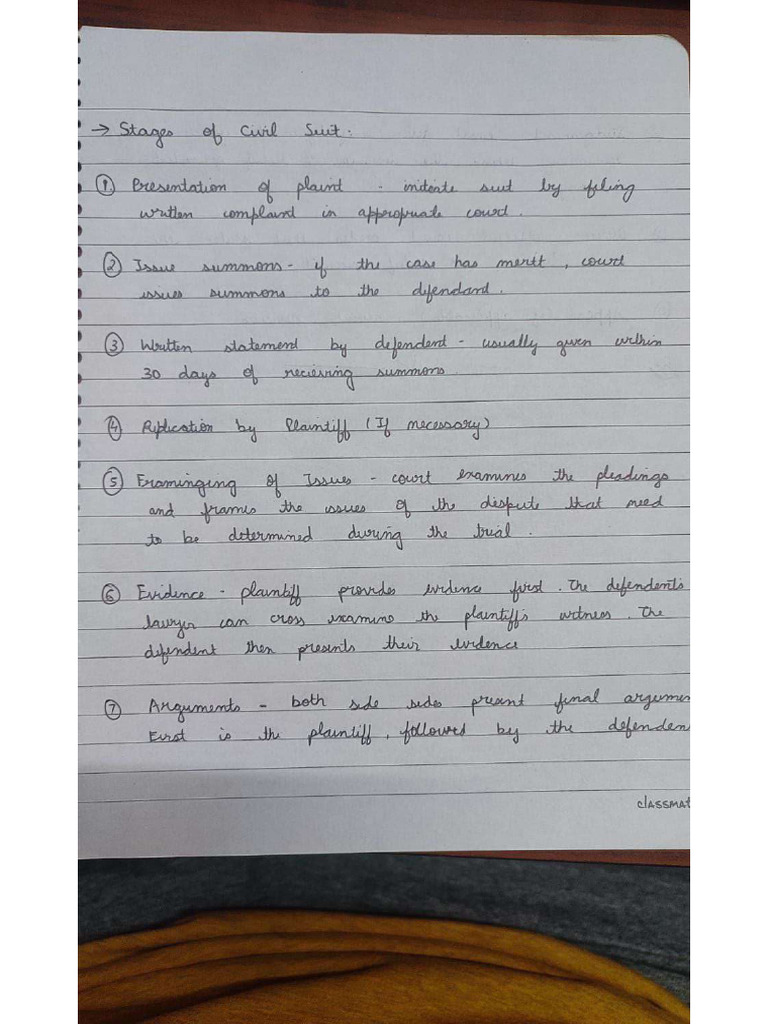 → Stages of Civil Suit:
① Presentation of plaint - initiate suit by filing
written complaint in appropriate court.
② Issue summons - if the case has merit, court
issues summons to the difendant.
③ Written statement by defendent - usually given within
30 days of recieving summons
④ Riplication by Plaintiff (If necessary)
⑤ Eraminging of Issues - court examines the pleadings
and frames the issues of the dispute that need
to be determined during the trial.
⑥ Evidence - plaintiff provides evidence first. The defendent's
lawyer can cross examine the plaintiff's witness. The
defendent then presents their evidence
⑦ Arguments - both side sides present final argumen
First is the plaintiff, followed by the defenden
classmat